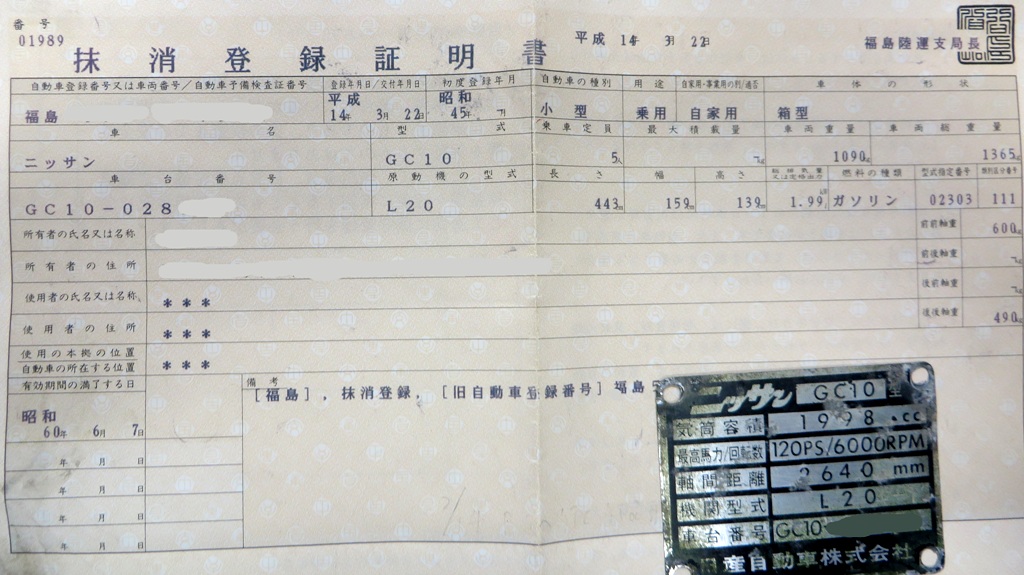 番号
01989
抹消登録証明書
平成 14年 3月 22日
福島陸運支局長
自動車登録番号又は車両番号/自動車予備検査証番号 登録年月日/交付年月日 初度登録年月 自動車の種別 用途 自家用・事業用の別/適否 車体の形状
福島 平成 14年 3月 22日 昭和 45年 月 小型 乗用 自家用 箱型
車名 型式 乗車定員 最大積載量 車両重量 車両総重量
ニッサン GC10 5人 kg 1090kg 1365kg
車台番号 原動機の型式 長さ 幅 高さ 総排気量又は定格出力 燃料の種類 型式指定番号 類別区分番号
GC10-028 L20 443cm 159cm 139cm 1.99 ガソリン 02303 111
所有者の氏名又は名称 前前軸重 600kg
所有者の住所 前後軸重 kg
使用者の氏名又は名称 *** 後前軸重 kg
使用者の住所 *** 後後軸重 490kg
使用の本拠の位置
自動車の所在する位置 ***
有効期間の満了する日 備考
[福島], 抹消登録, [旧自動車登録番号] 福島
昭和
60年 6月 7日
年 月 日
年 月 日
年 月 日
年 月 日
ニッサン GC10 型
気筒容積 1998 .cc
最高馬力/回転数 120PS/6000RPM
軸間距離 2640 mm
機関型式 L20
車台番号 GC10
日産自動車株式会社